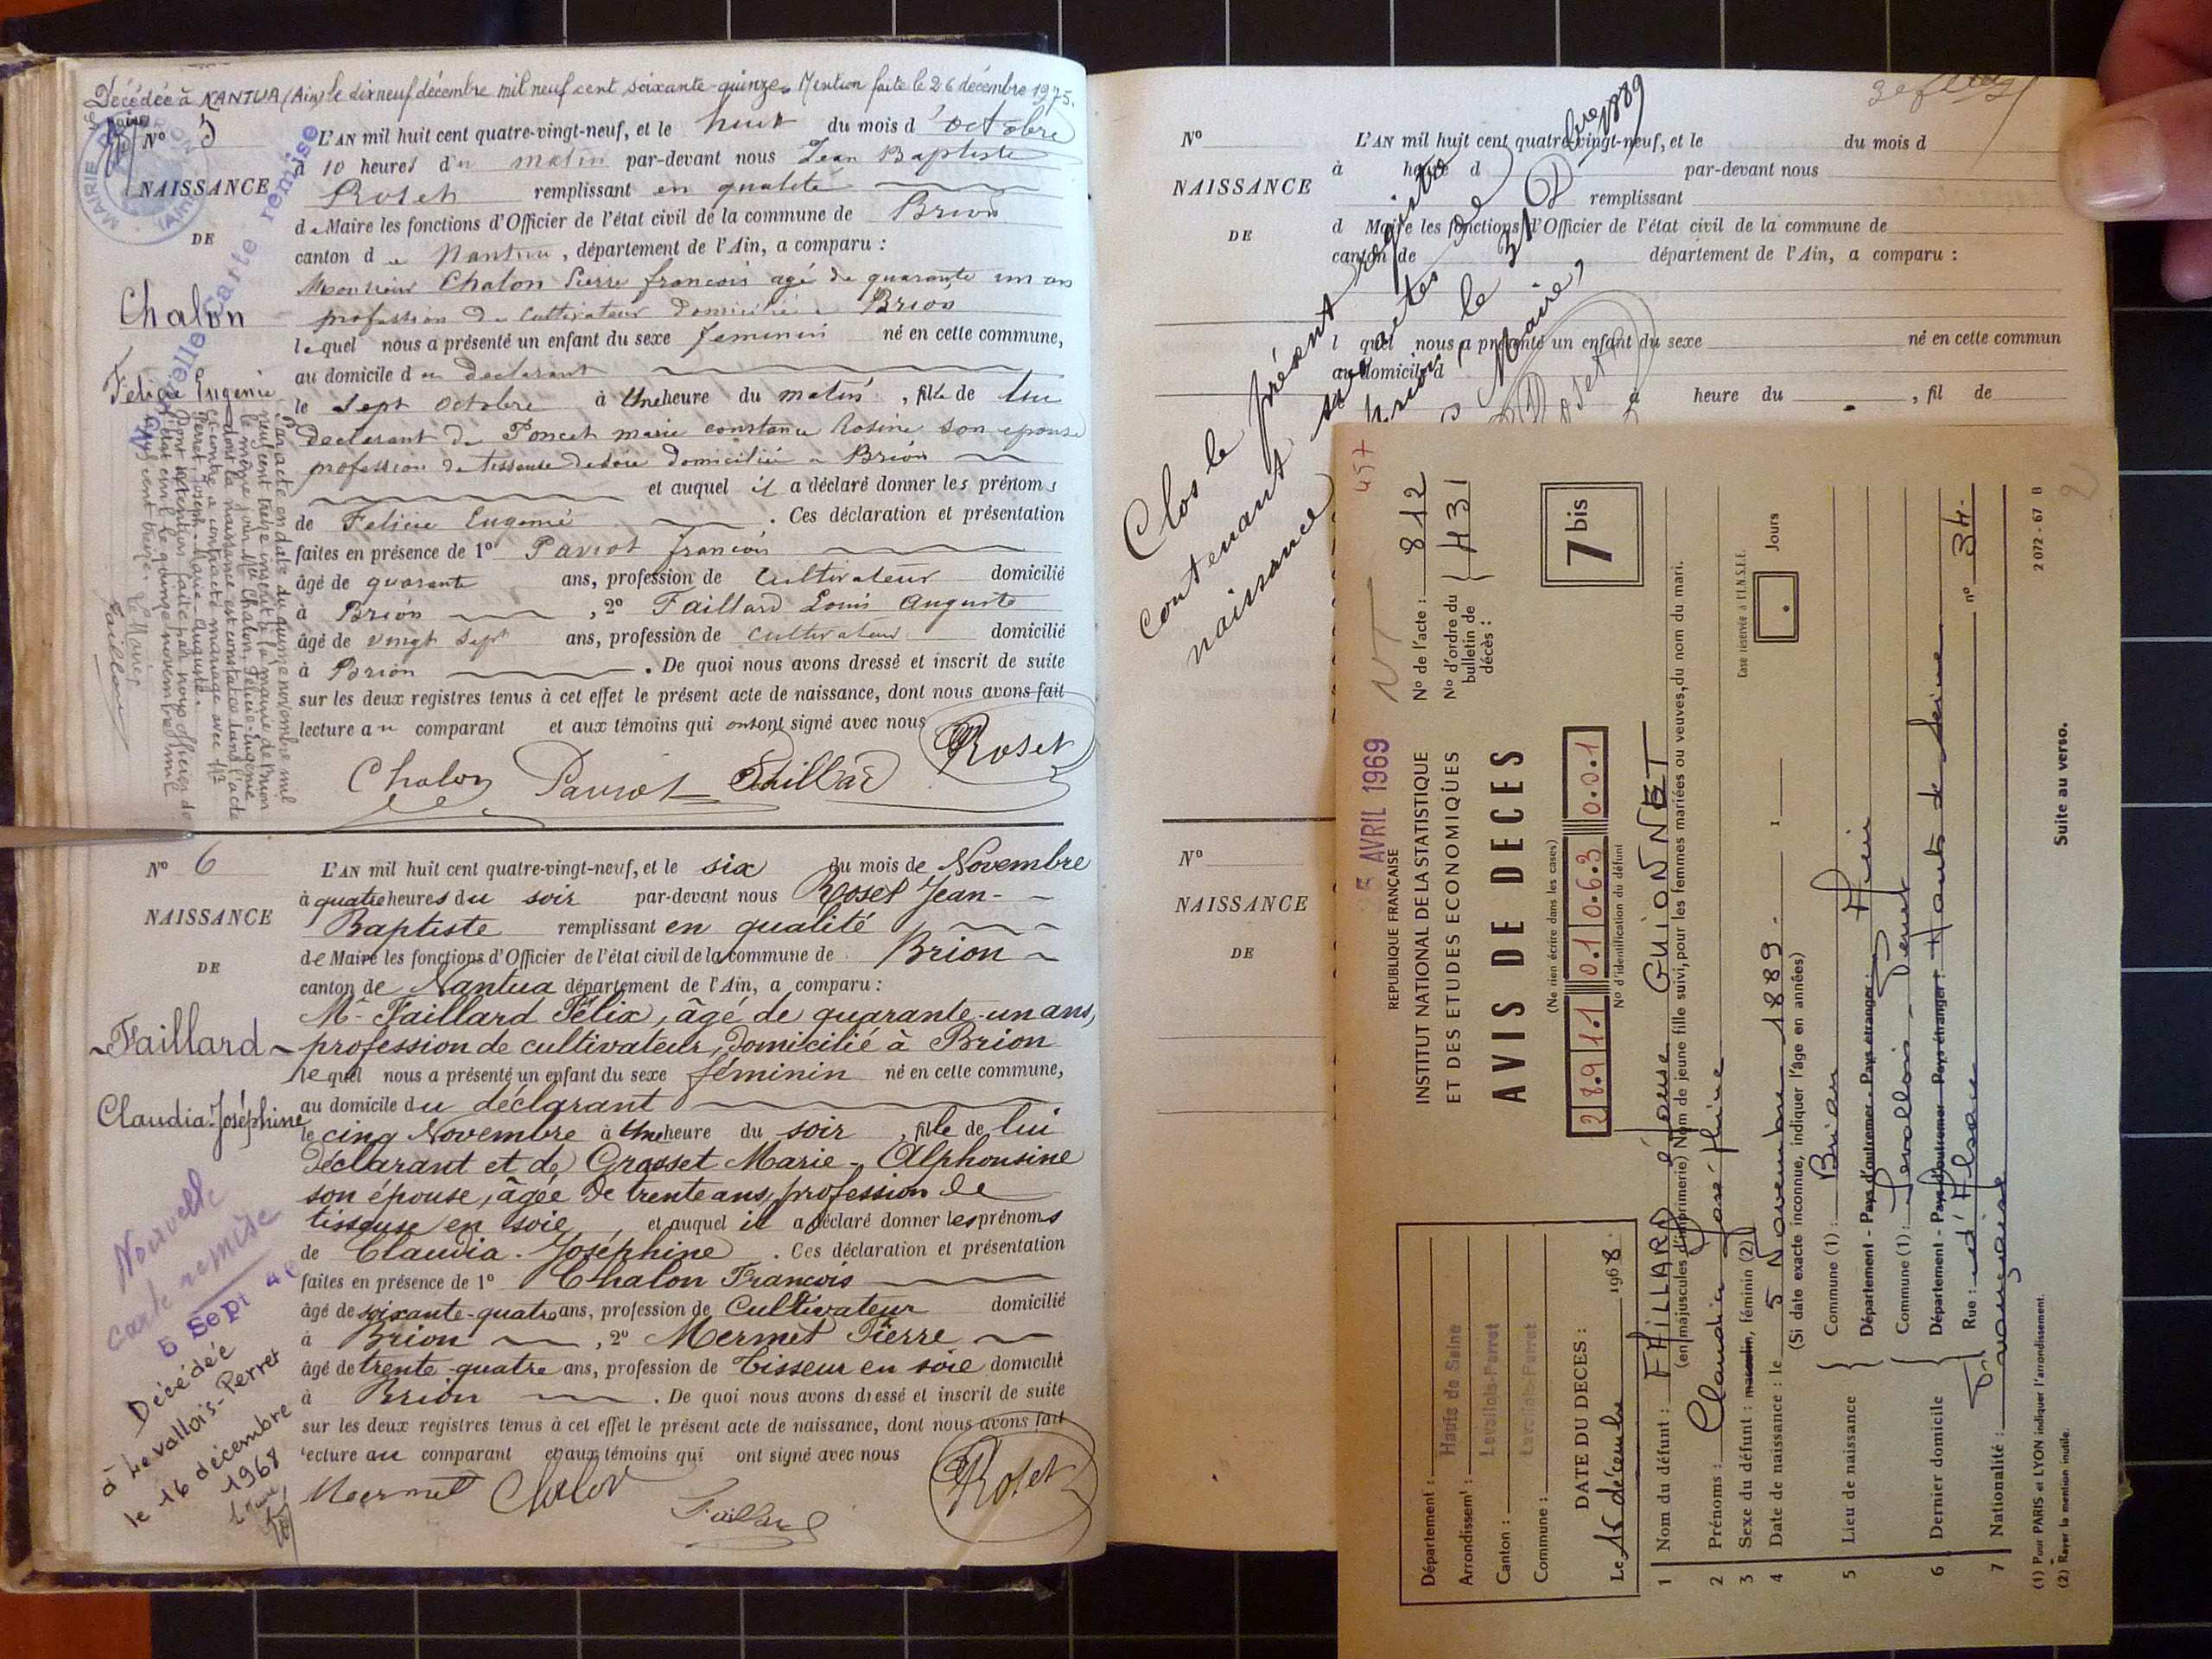 Décédée à NANTUA (Ain) le dix neuf décembre mil neuf cent soixante-quinze. Mention faite le 26 décembre 1975.
N° 5
NAISSANCE
DE
Chalon
Félicie Eugénie
L'AN mil huit cent quatre-vingt-neuf, et le huit du mois d'octobre
à 10 heures du matin par-devant nous Jean Baptiste
Roset remplissant en qualité
de Maire les fonctions d'Officier de l'état civil de la commune de Brion
canton de Nantua, département de l'Ain, a comparu :
Monsieur Chalon Pierre françois agé de quarante un ans
profession de Cultivateur domicilié a Brion
lequel nous a présenté un enfant du sexe feminin né en cette commune,
au domicile du declarant
le sept octobre à Une heure du matin, fille de lui
declarant de Poncet marie constance Rosine son epouse
profession de tisseuse de soie domiciliée a Brion
et auquel il a déclaré donner les prénoms
de Felicie Eugenie. Ces déclaration et présentation
faites en présence de 1° Pavrot françois
âgé de quarante ans, profession de Cultivateur domicilié
à Brion, 2° Faillard Louis Auguste
âgé de vingt sept ans, profession de cultivateur domicilié
à Brion. De quoi nous avons dressé et inscrit de suite
sur les deux registres tenus à cet effet le présent acte de naissance, dont nous avons fait
lecture au comparant et aux témoins qui ont signé avec nous
Chalon Pavrot Faillard Roset
Nouvelle Carte remise
Par acte en date du quinze novembre mil
neuf cent treize inscrit à la mairie de Brion
le même jour Mlle Chalon, Félicie-Eugénie
dont la naissance est constatée dans l'acte
ci-contre a contracté mariage avec Mr
Perret, Joseph-Marie-Auguste.
Dont mention faite par nous officier de
l'état civil le quinze novembre mil
neuf cent treize. Le Maire
Faillard
N° 6
NAISSANCE
DE
Faillard
Claudia-Joséphine
L'AN mil huit cent quatre-vingt-neuf, et le six du mois de Novembre
à quatre heures du soir par-devant nous Roset Jean-
Baptiste remplissant en qualité
de Maire les fonctions d'Officier de l'état civil de la commune de Brion
canton de Nantua département de l'Ain, a comparu :
Mr Faillard Félix, âgé de quarante-un ans,
profession de cultivateur, domicilié à Brion
lequel nous a présenté un enfant du sexe féminin né en cette commune,
au domicile du déclarant
le cinq Novembre à Une heure du soir, fille de lui
déclarant et de Grosset Marie-Alphonsine
son épouse, âgée de trente ans, profession de
tisseuse en soie, et auquel il a déclaré donner les prénoms
de Claudia-Joséphine. Ces déclaration et présentation
faites en présence de 1° Chalon François
âgé de soixante-quatre ans, profession de Cultivateur domicilié
à Brion, 2° Mermet Pierre
âgé de trente-quatre ans, profession de Tisseur en soie domicilié
à Brion. De quoi nous avons dressé et inscrit de suite
sur les deux registres tenus à cet effet le présent acte de naissance, dont nous avons fait
lecture au comparant et aux témoins qui ont signé avec nous
Mermet Chalon Faillard Roset
Nouvelle
carte remise
5 Sept 4
Décédée
à Levallois-Perret
le 16 décembre
1968
N°
NAISSANCE
DE
L'AN mil huit cent quatre-vingt-neuf, et le du mois d
à heure d par-devant nous
remplissant
d Maire les fonctions d'Officier de l'état civil de la commune de
canton de département de l'Ain, a comparu :
l quel nous a présenté un enfant du sexe né en cette commun
au domicile d
à heure du , fil de
Clos le présent registre
contenant six actes de
naissance
Brion, le 31 Xbre 1889
Le Maire,
Roset
N°
NAISSANCE
DE
457
25 AVRIL 1969
REPUBLIQUE FRANÇAISE
INSTITUT NATIONAL DE LA STATISTIQUE
ET DES ETUDES ECONOMIQUES
AVIS DE DECES
N° de l'acte : 812
N° d'ordre du bulletin de décès : 431
7 bis
(Ne rien écrire dans les cases)
2 8.9 1.1 0.1 0.6.3 0.0.1
N° d'identification du défunt
Département : Hauts de Seine
Arrondissemt : Levallois-Perret
Canton : Levallois-Perret
Commune :
DATE DU DECES :
Le 16 décembre 1968.
1 Nom du défunt : FAILLARD épouse GUIONNET
(en majuscules d'imprimerie) Nom de jeune fille suivi, pour les femmes mariées ou veuves, du nom du mari.
2 Prénoms : Claudia Joséphine
3 Sexe du défunt : masculin, féminin (2)
Case réservée à l'I.N.S.E.E.
4 Date de naissance : le 5 Novembre 1889.
Jours
(Si date exacte inconnue, indiquer l'âge en années)
5 Lieu de naissance
Commune (1) : Brion
Département - Pays d'outremer - Pays étranger : Ain
6 Dernier domicile
Commune (1) : Levallois-Perret
Département - Pays d'outremer - Pays étranger : Hauts de Seine
Rue : d'Alsace n° 34.
7 Nationalité : Française
(1) Pour PARIS et LYON indiquer l'arrondissement.
(2) Rayer la mention inutile.
Suite au verso.
2 072 - 67 B